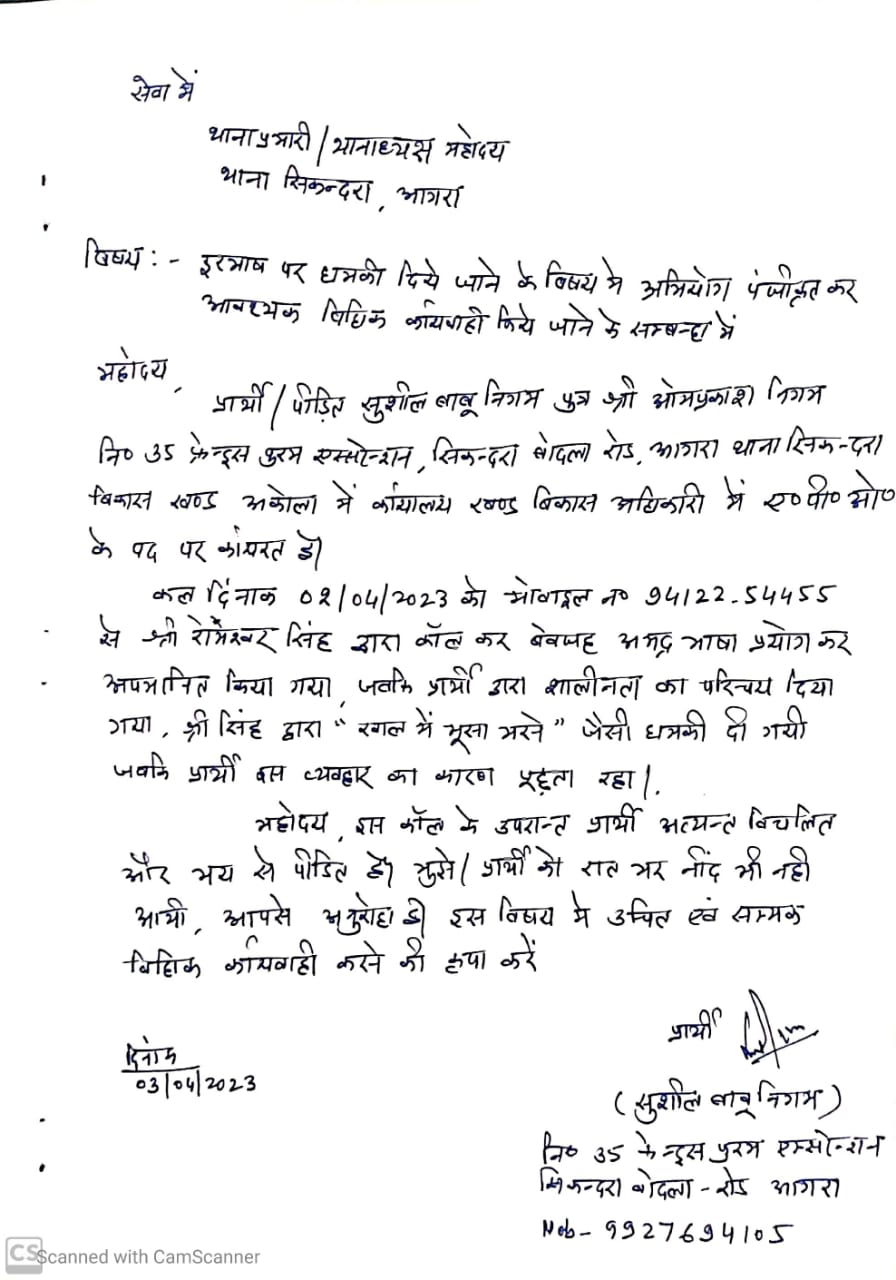 सेवा में
थाना प्रभारी / थानाध्यक्ष महोदय
थाना सिकन्दरा, आगरा
विषय :- दूरभाष पर धमकी दिये जाने के विषय मे अभियोग पंजीकृत कर
आवश्यक विधिक कार्यवाही किये जाने के सम्बन्ध में
महोदय,
प्रार्थी / पीड़ित सुशील बाबू निगम पुत्र श्री ओमप्रकाश निगम
नि० 35 फ्रेन्ड्स पुरम एक्सटेन्शन, सिकन्दरा बोदला रोड, आगरा थाना सिकन्दरा
विकास खण्ड अकोला में कार्यालय खण्ड विकास अधिकारी में ए०पी०ओ०
के पद पर कार्यरत है।
कल दिंनाक 02/04/2023 को मोबाइल न० 94122-54455
से श्री रामेश्वर सिंह द्वारा कॉल कर बेवजह अभद्र भाषा प्रयोग कर
अपमानित किया गया, जबकि प्रार्थी द्वारा शालीनता का परिचय दिया
गया, श्री सिंह द्वारा " में भूसा भरने " जैसी धमकी दी गयी
जबकि प्रार्थी इस व्यवहार का कारण पूछता रहा।
महोदय, इस कॉल के उपरान्त प्रार्थी अत्यन्त विचलित
और भय से पीडित है। मुझे / प्रार्थी को रात भर नींद भी नही
आयी, आपसे अनुरोध है। इस विषय मे उचित एवं सम्मक
विधिक कार्यवाही करने की कृपा करें
प्रार्थी
दिनांक
03/04/2023
( सुशील बाबू निगम )
नि० 35 फ्रेन्ड्स पुरम एक्सटेन्शन
सिकन्दरा बोदला - रोड आगरा
Mob - 9927694105
CS Scanned with CamScanner